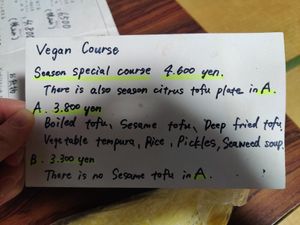 Vegan Course
Season special course 4.600 yen.
There is also season citrus tofu plate in A.
A. 3.800 yen
Boiled tofu, Sesame tofu, Deep fried tofu,
Vegetable tempura, Rice, Pickles, Seaweed soup.
B. 3.300 yen
There is no Sesame tofu in A.